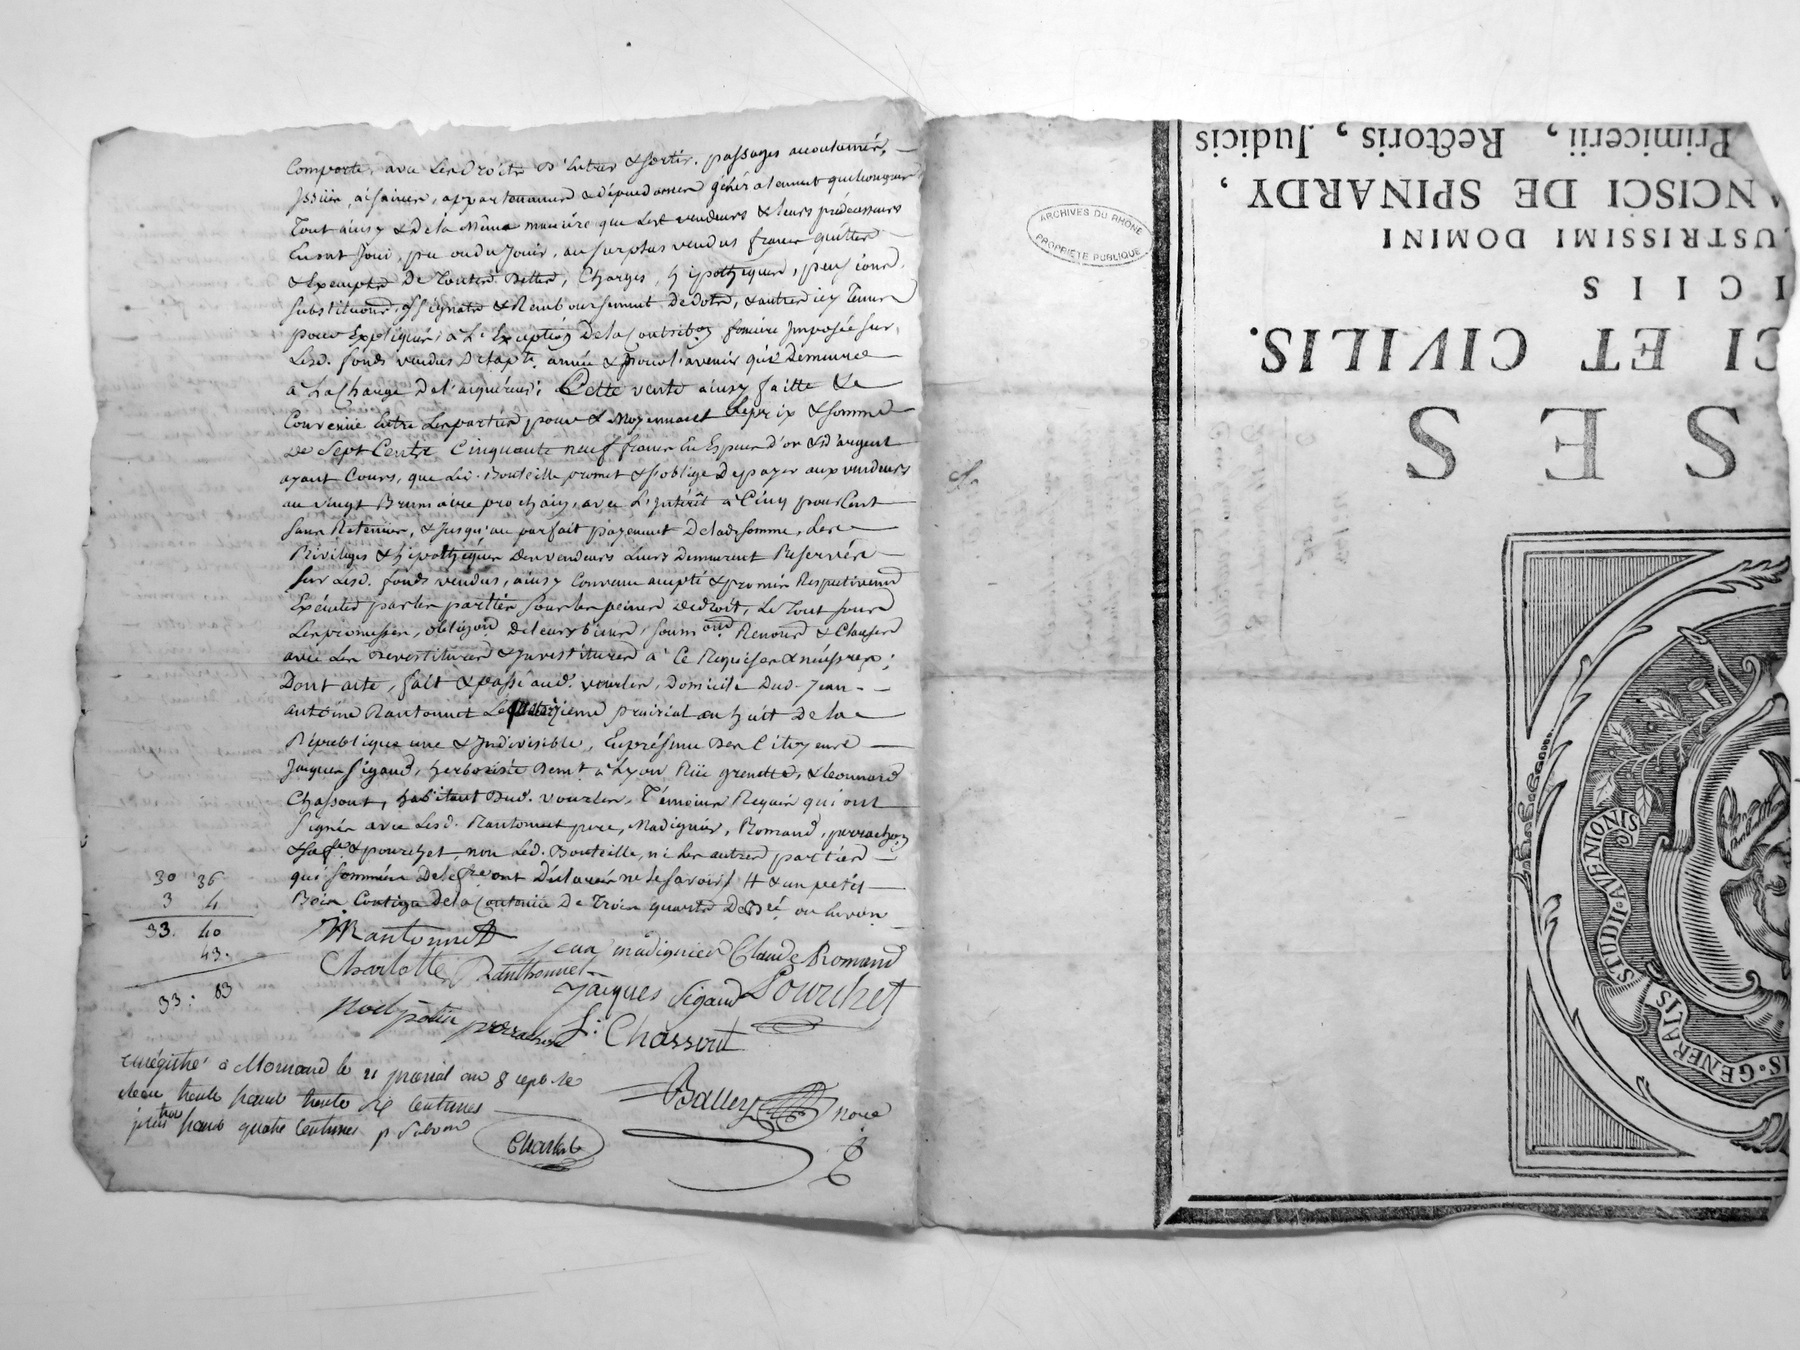 Comporte, avec les droits d'entrer & sortir, passages accoutumés,
issües, aisances, appartenances & dépendances généralement quelconques
Tout ainsy & de la même manière que les vendeurs & leurs prédécesseurs
en ont joui, pu ou du jouir, au surplus vendus francs quittes
& exempts de toutes dettes, charges, hipothèques, pensions,
substitutions, assignats & Remboursement de dots, & autres icy tenus
pour expliqués, à l'exception de la contribon foncière imposée sur
lesd. fonds vendus de la pte année & pour l'avenir qui demeure
à la charge de l'aiquéreur; Cette vente ainsy faitte &
convenüe entre les parties pour & moyennant le prix & somme
de sept Cents Cinquante neuf francs en Espèces d'or & d'argent
ayant cours, que led. Bouteille promet & s'oblige de payer aux vendeurs
au vingt Brumaire prochain, avec l'intérêt à Cinq pour Cent
sans Retenües, & jusqu'au parfait payement de lad. somme, les
Privilèges & hipothèques des vendeurs leurs demeurent Reservés
sur lesd. fonds vendus, ainsy convenu accepté & promis Respectivement
Exécuter par les parties sous les peines de droit, le Tout sous
les promesses, obligons de leurs biens, soumons Renons & Clauses
avec les devestitures & investitures à ce Requises & nécessres;
Dont acte, fait & passé aud. vourles, domicile dud. Jean-
antoine Rantonnet le quatorzieme prairial an huit de la
République une & indivisible, En présence des Citoyens
Jacques Sigaud, herboriste demt à Lyon Rüe grenette, & leonnard
Chassout, habitant dud. vourles, Témoins Requis qui ont
signés avec lesd. Rantonnet pere, Madignier, Romand, perrachon
& sa fe & pourchet, non led. Bouteille, ni les autres parties
qui sommées de le fre ont déclarés ne le savoir / & un petit
Bois contigu de la contenüe de trois quarts de Bée ou luron
30 36
3 4
33. 40
43.
33: 83
JRantonnet
Jean madignier Claude Romand
Charlotte Ranthonnet
Jacques Sigaud Pourchet
Noel potin perrachon L: Chassout
enregistré à Mornand le 21 prairial an 8 repb. le
recu trente francs trente six centimes
plus trois francs quatre centimes p subvon
Charles
Balley nore
ARCHIVES DU RHÔNE
PROPRIÉTÉ PUBLIQUE
S E S
CI ET CIVILIS.
ICIIS
USTRISSIMI DOMINI
ANCISCI DE SPINARDY,
Primicerii, Rectoris, Judicis
IS·GENERALIS STUDII·AVENIONIS